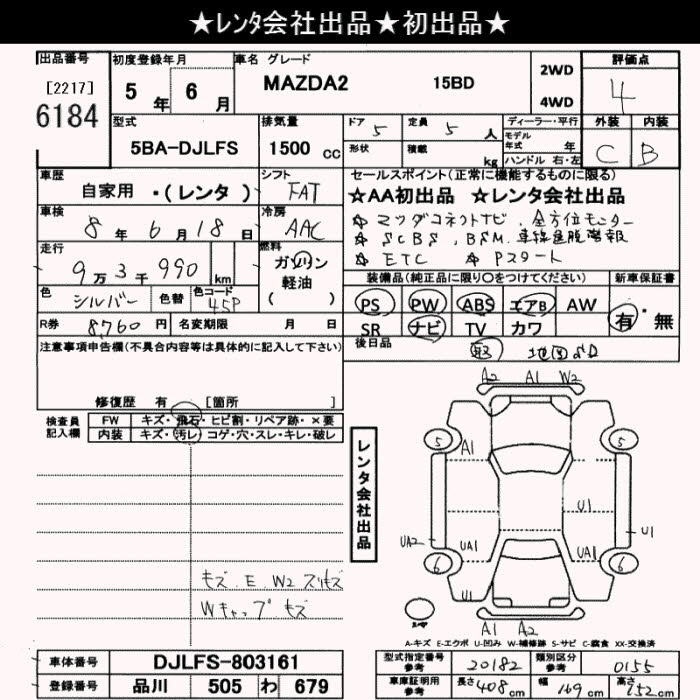 ★レンタ会社出品★初出品★
出品番号 初度登録年月 車名 グレード 評価点
[2217] 5年 6月 MAZDA2 15BD 2WD 4
6184 4WD
型式 排気量 ドア 5 定員 5人 ディーラー・平行 外装 内装
5BA-DJLFS 1500cc 形状 積載 kg モデル年式 年 C B
ハンドル 右・左
車歴 シフト セールスポイント(正常に機能するものに限る)
自家用 ・(レンタ) FAT ☆AA初出品 ☆レンタ会社出品
車検 冷房 ☆マツダコネクトナビ、全方位モニター
8年 6月 18日 AAC ☆SCBS、BSM、車線逸脱警報
走行 燃料 ☆ETC ☆Pスタート
9万3千990km ガソリン 軽油 ( ) 装備品(純正品に限り○をつけてください) 新車保証書
色 シルバー 色替 色コード 45P PS PW ABS エアB AW 有・無
R券 8760円 名変期限 月 日 SR ナビ TV カワ
注意事項申告欄(不具合内容等は具体的に記入して下さい) 後日品 取 地図SD
修復歴 有 [箇所
A2 A1 W2
検査員記入欄 FW キズ・飛石・ヒビ割・リペア跡・×要
内装 キズ・汚レ・コゲ・穴・スレ・キレ・破レ
5 A1 5
レンタ会社出品
U1
UA2 UA1 UA1 U1
6 6
U1
キズ、E、W2 スリキズ
Wキャップ キズ
A1 A2
A-キズ E-エクボ U-凹み W-補修跡 S-サビ C-腐食 XX-交換済
車体番号 DJLFS-803161 型式指定番号 参考 20182 類別区分 参考 0155
登録番号 品川 505 わ 679 車庫証明用 参考 長さ 408cm 幅 169cm 高さ 152cm